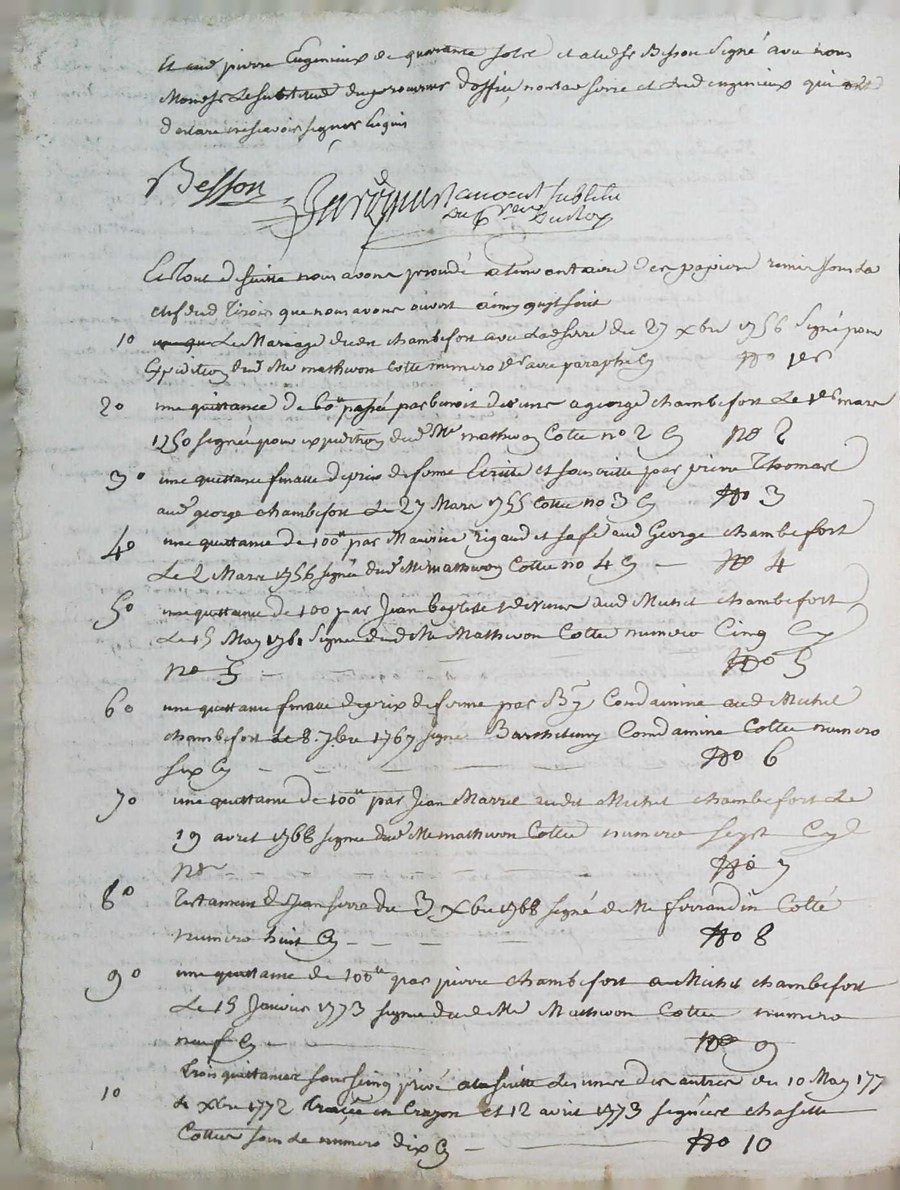 Et aud pierre Eugenieux de quarante sols et a led Sr Besson signé avec nous
d'office nostre serre et led eugenieux qui ont
declaré ne scavoir signer
Besson
avocat substitu
du Roy
Et tout de suitte nous avons procedé a l'inventaire des papiers remis sous la
clef dud tiroir que nous avons ouvert ainsy quil suit
1o Le Mariage dudit chambefort avec lad serre du 27 xbre 1756 signé pour
Expedition dud Me mathevon cotté numero 1er avec paraphe Cy No 1er
2o une quittance de 60ll passée par benoit a george chambefort Le 1er mars
1750 signée pour expedition dud Me mathevon Cotté no 2 Cy No 2
3o une quittance finalle de prix de ferme Ecritte et souscritte par pierre Thomas
aud george chambefort Le 27 Mars 1755 Cotté no 3 Cy No 3
4o une quittance de 100ll par Maurice rigaud et sa fe aud George chambefort
Le 2 Mars 1756 signée dud Me mathevon Cottée no 4 Cy No 4
5o une quittance de 100 par Jean baptiste aud Michel chambefort
Le 15 May 1761 signée dud Me Mathevon Cottée numero Cinq Cy
no 5 No 5
6o une quittance finalle de prix de ferme par By Condamine aud Michel
chambefort Le 8 7bre 1767 signé Barthelemy Condamine Cottée numero
six Cy No 6
7o une quittance de 100ll par Jean Marrel audit Michel chambefort Le
19 avril 1768 signée dud Me mathevon Cottée numero sept Cy
No 7
8o Testament de Jean serre du 3 xbre 1768 signé de Me ferrandin Cotté
numero huit Cy No 8
9o une quittance de 100ll par pierre chambefort a Michel chambefort
Le 15 Janvier 1773 signée dud Me Mathevon Cottée numero
neuf Cy No 9
10 Trois quittances sous seing privé a la suitte des unes des autres du 10 May 177
de xbre 1772 tracée en crayon et 12 avril 1773 signées chasette
Cottées sous le numero dix Cy No 10